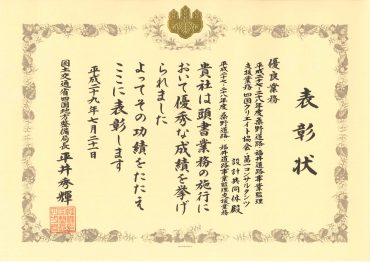 表彰状
優良業務
平成二十七-二十八年度桑野道路 福井道路事業監理
支援業務 四国クリエイト協会・第一コンサルタンツ
設計共同体殿
平成二十七-二十八年度 桑野道路 福井道路事業監理支援業務
貴社は頭書業務の施行に
おいて優秀な成績を挙げ
られました
よってその功績をたたえ
ここに表彰します
平成二十九年七月二十一日
国土交通省四国地方整備局長 平井秀輝